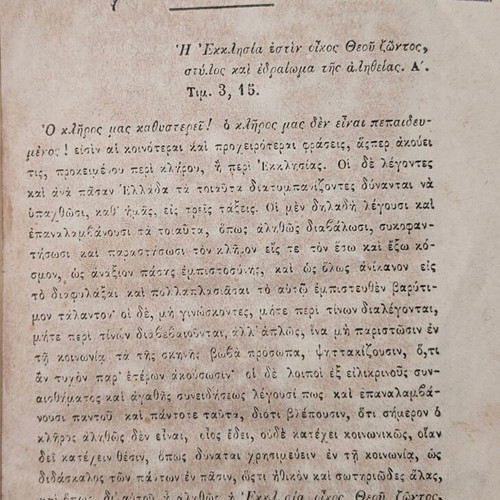 Ἡ Ἐκκλησία ἐστὶν οἶκος Θεοῦ ζῶντος,
στύλος καὶ ἑδραίωμα τῆς ἀληθείας. Α΄.
Τιμ. 3, 15.
Ὁ κλῆρος μας καθυστερεῖ! ὁ κλῆρος μας δὲν εἶναι πεπαιδευ-
μένος! εἰσὶν αἱ κοινότεραι καὶ προχειρότεραι φράσεις, ἅςπερ ἀκούει
τις, προκειμένου περὶ κλήρου, ἢ περὶ Ἐκκλησίας. Οἱ δὲ λέγοντες
καὶ ἀνὰ πᾶσαν Ἑλλάδα τὰ τοιαῦτα διατυμπανίζοντες δύνανται νὰ
ὑπαχθῶσι, καθ᾽ ἡμᾶς, εἰς τρεῖς τάξεις. Οἱ μὲν δηλαδὴ λέγουσι καὶ
ἐπαναλαμβάνουσι τὰ τοιαῦτα, ὅπως ἀληθῶς διαβάλωσι, συκοφαν-
τήσωσι καὶ παραστήσωσι τὸν κλῆρον εἴς τε τὸν ἔσω καὶ ἔξω κό-
σμον, ὡς ἀνάξιον πάσης ἐμπιστοσύνης, καὶ ὡς ὅλως ἀνίκανον εἰς
τὸ διαφυλάξαι καὶ πολλαπλασιᾶσαι τὸ αὐτῷ ἐμπιστευθὲν βαρύτι-
μον τάλαντον· οἱ δὲ, μὴ γινώσκοντες, μήτε περὶ τίνων διαλέγονται,
μήτε περὶ τίνων διαβεβαιοῦνται, ἀλλ᾽ ἁπλῶς, ἵνα μὴ παριστῶσιν ἐν
τῇ κοινωνίᾳ τὰ τῆς σκηνῆς βωβὰ πρόσωπα, ψηττακίζουσιν, ὅ,τι
ἂν τυχὸν παρ᾽ ἑτέρων ἀκούσωσιν· οἱ δὲ λοιποὶ ἐξ εἰλικρινοῦς συν-
αισθήματος καὶ ἀγαθῆς συνειδήσεως λέγουσί πως καὶ ἐπαναλαμβά-
νουσι παντοῦ καὶ πάντοτε ταῦτα, διότι βλέπουσιν, ὅτι σήμερον ὁ
κλῆρος ἀληθῶς δὲν εἶναι, οἷος ἔδει, οὐδὲ κατέχει κοινωνικῶς, οἵαν
δεῖ κατέχειν θέσιν, ὅπως δύναται χρησιμεύειν ἐν τῇ κοινωνίᾳ, ὡς
διδάσκαλος τῶν πάντων ἐν πᾶσιν, ὥς τι ἠθικὸν καὶ σωτηριῶδες ἅλας,
καὶ ὅπως δι᾽ αὐτοῦ ᾖ ἀληθῶς ἡ Ἐκκλησία οἶκος Θεοῦ ζῶντος,